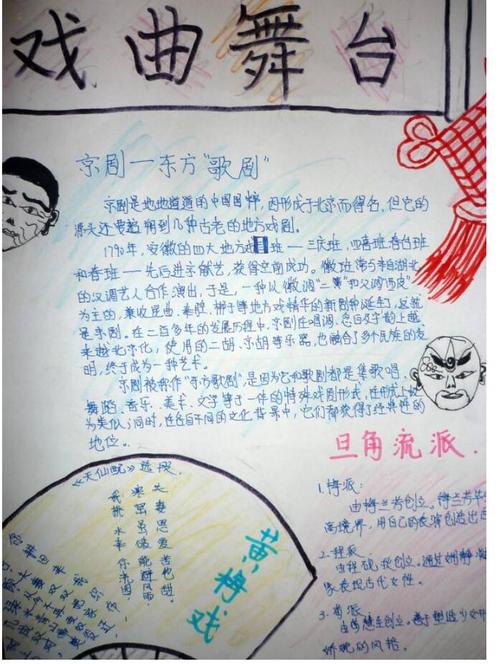 戏曲舞台
京剧—东方"歌剧"
京剧是地地道道的中国国粹，因形成于北京而得名，但它的
源头还要追溯到几种古老的地方戏剧。
1790年，安徽的四大地方戏班——三庆班、四喜班、春台班
和春班——先后进京献艺，获得空前成功。徽班常与来自湖北
的汉调艺人合作演出，于是，一种以徽调"二黄"和汉调"西皮"
为主的，兼收昆曲、秦腔、梆子等地方戏精华的新剧种诞生了，这就
是京剧。在二百多年的发展历程中，京剧在唱词、念白及字韵上越
来越北京化，使用的二胡、京胡等乐器，也融合了多个民族的发
明，终于成为一种艺术。
京剧被称作"东方歌剧"，是因为它和歌剧都是集歌唱、
舞蹈、音乐、美术、文学等于一体的特殊戏剧形式，在形式上极
为类似，同时，在各自不同的文化背景中，它们都获得了经典性的
地位。
旦角流派.
1.梅派：
由梅兰芳创立。梅兰芳
高境界，用自己的表演创造出
2.程派
由程砚秋创立。通过
象表现古代女性。
3.荀派
由荀慧生创立。善于塑造少女
娇婉的风格。
《天仙配》选段
黄梅戏